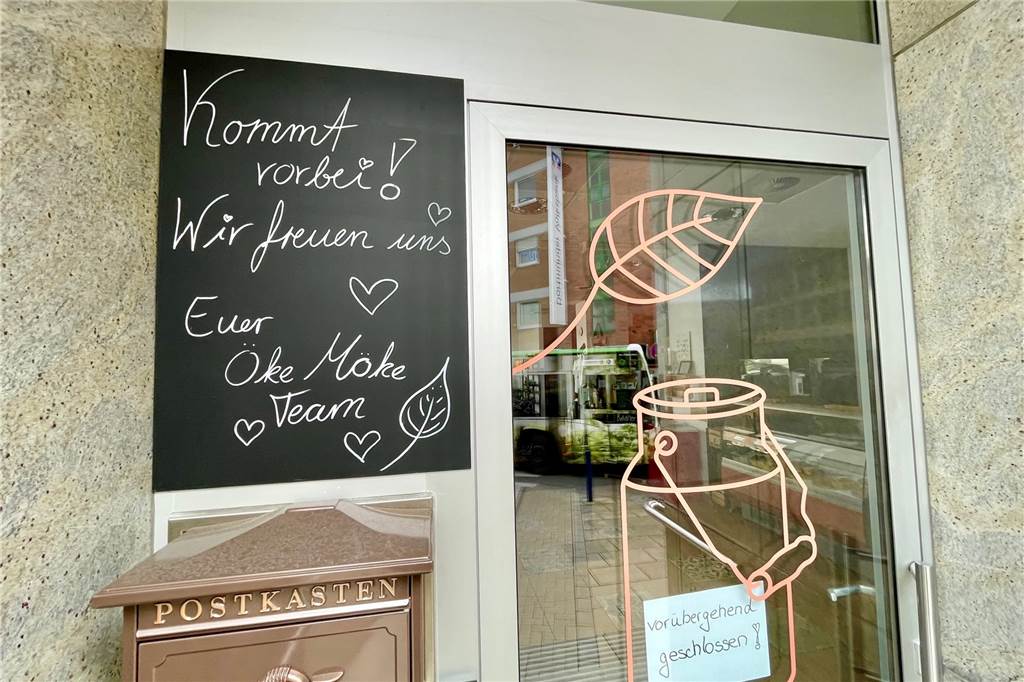 Kommt
vorbei!
Wir freuen uns
Euer
Öke Möke
Team
POSTKASTEN
vorübergehend
geschlossen!